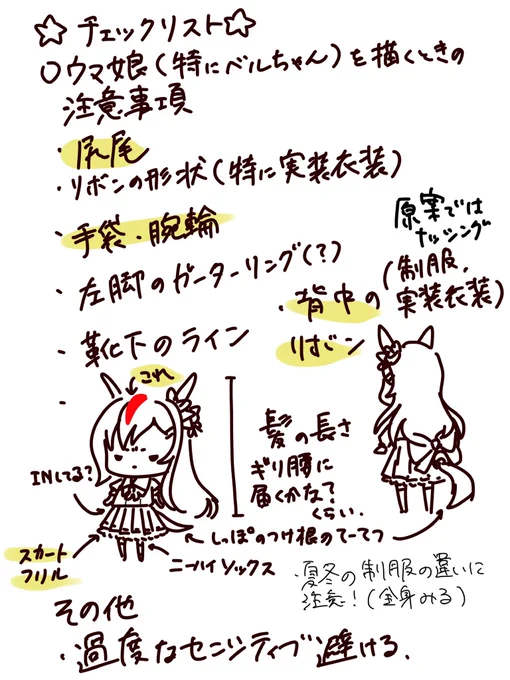 ☆チェックリスト☆
○ウマ娘(特にベルちゃん)を描くときの
注意事項
・尻尾
・リボンの形状(特に実装衣装)
・手袋・腕輪
・左脚のガーターリング(?)
・靴下のライン
・
原案では
ナッシング
・背中の(制服、
リボン 実装衣装)
これ
INしてる?
髪の長さ
ギリ腰に
届くかな?
くらい.
しっぽのつけ根の
スカート
フリル
ニーハイソックス
・夏冬の制服の違いに
注意!(全身みる)
その他
・過度なセンシティブ避ける.